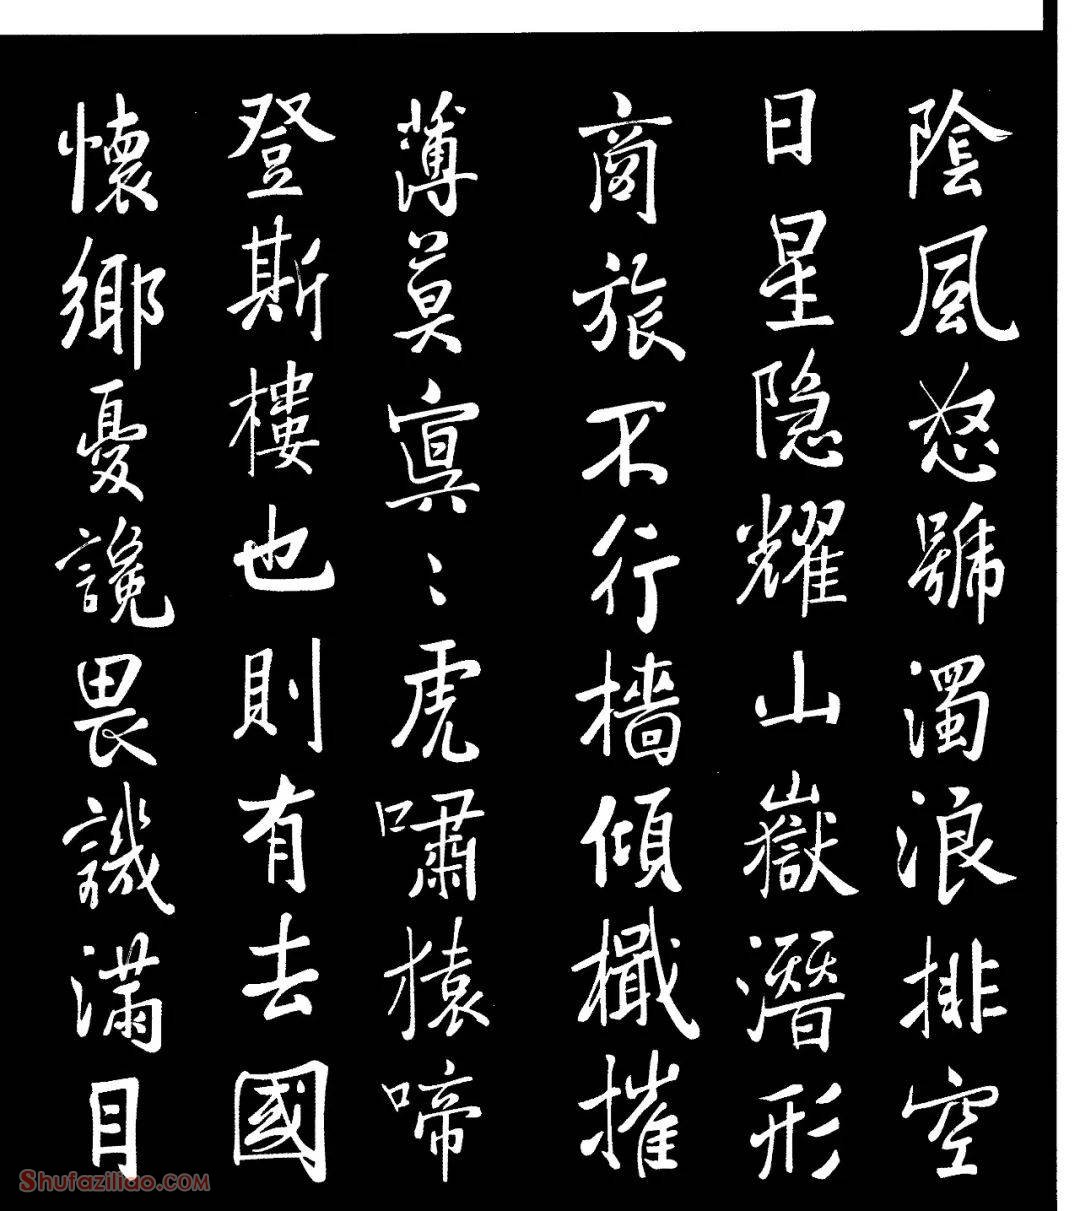 陰風怒號濁浪排空
日星隐耀山嶽潛形
商旅不行檣傾檝摧
薄莫冥〻虎嘯猿啼
登斯樓也則有去國
懷鄉憂讒畏譏滿目
Shufaziliao.COM